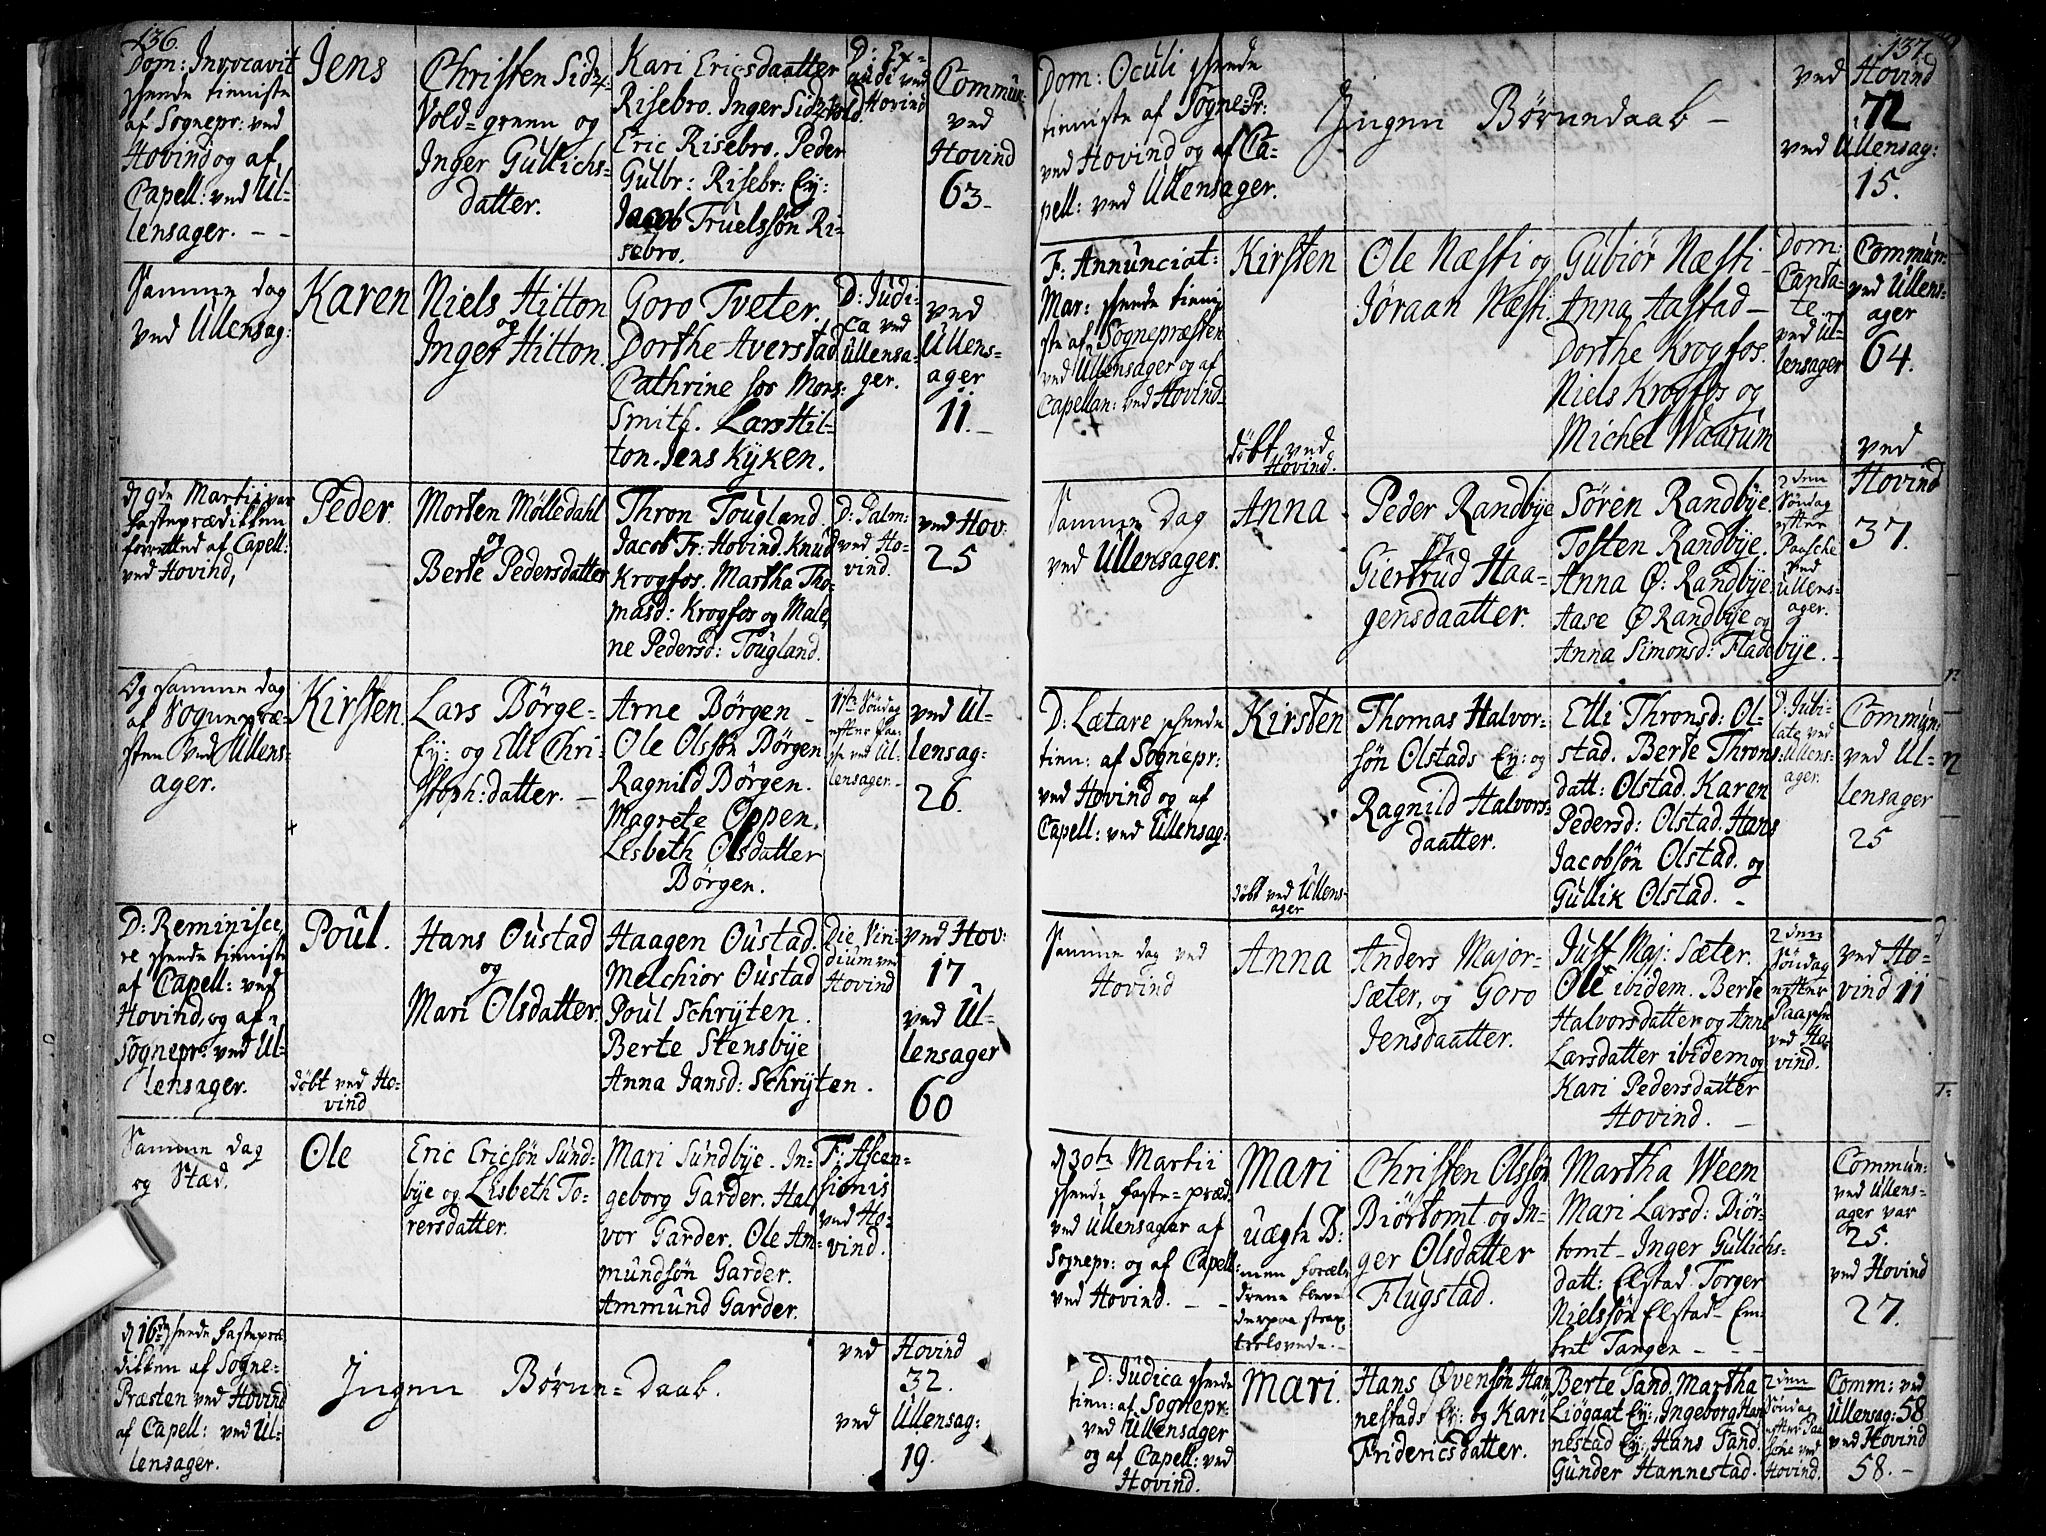 136.
Dom: Invocavit
skeede tieniste
af Sognepr: ved
Hovind og af
Capell: ved Ul-
lensager. - -
Jens
Christen Sidz-
Vold-green og
Inger Gullichs-
datter.
Kari Ericsdaatter
Risebro. Inger Sidzvold.
Eric Risebro. Peder
Gulbr: Risebr: Ey:
Jacob Truelssön Ri-
sebro.
D: Ex-
audi ved
Hovind
Commun:
ved
Hovind
63-
Samme dag
ved Ullensag:
Karen
Niels Hilton
og
Inger Hilton.
Goro Tveter.
Dorthe Averstad
Cathrine hos Mons
Smith. Lars Hil-
ton. Jens Kyken.
D: Judi-
ca ved
Ullensa-
ger.
ved
Ullens-
ager
11.-
d 9de Martii var
fasteprædikken
forretted af Capell:
ved Hovind,
Peder.
Morten Mölledahl
og
Berte Pedersdatter
Thron Tougland.
Jacob Fr: Hovind. Knud
Krogfos. Martha Tho-
masd: Krogfos og Male-
ne Pedersd: Tougland.
D: Palm:
ved Ho-
vind.
ved Hov:
25
Og samme dag
af Sognepræ-
sten ved Ullens-
ager.
Kirsten.
Lars Börge-
Ey: og Elli Chri-
stoph:datter. -
Arne Börgen -
Ole Olssön Börgen
Ragnild Börgen.
Magrete Oppen.
Lisbeth Olsdatter
Börgen.
1ste Söndag
efter Paa-
ske ved Ul-
lensager.-
ved Ul-
lensag:
26.
D: Reminisce-
re skeede tieniste
af Capell: ved
Hovind, og af
Sognepr: ved Ul-
lensager.
Poul.
döbt ved Ho-
vind
Hans Oustad
og
Mari Olsdatter
Haagen Oustad.
Melchior Oustad
Poul Schryten.
Berte Stensbye
Anna Jansd: Schryten.
Die Vin-
dium ved
Hovind
ved Hov:
17
ved Ul-
lensager
60
Samme dag
og Stæd.
Ole
Eric Ericsön Sund-
bye og Lisbeth To-
rersdatter.
Mari Sundbye. In-
geborg Garder. Hal-
vor Garder. Ole Am-
mundsön Garder.
Ammund Garder.
F: Ascen-
sionis
ved Ho-
vind.
d 16de skeede fastepræ-
dikken af Sogne-
Præsten ved Hovind
af Capell: ved Ul-
lensager.
Ingen Börne-Daab.
ved Hovind
32.
ved Ullensag:
19.
137.
Dom: Oculi skeede
tieniste af Sogne-Pr:
ved Hovind og af Ca-
pell: ved Ullensager.
Ingen Börnedaab -
ved Hovind
72
ved Ullensag:
15.
F: Annunciat:
Mar: skeede tieni-
ste af Sognepræsten
ved Ullensager og af
Capellan: ved Hovind-
Kirsten
döbt ved
Hovind.
Ole Næsti og
Jöraan Næsti.
Gubiör Næsti-
Anna Aastad-
Dorthe Krogfos.
Niels Krogfos og
Michel Waarum
Dom:
Canta-
te.
ved Ul-
lensager
Commun:
ved Ullens-
ager
64.
ved
Hovind
37.
Samme Dag
ved Ullensager.
Anna
Peder Randbye
og
Giertrud Haa-
gensdaatter.
Sören Randbye.
Tosten Randbye.
Anna Ö: Randbye
Aase Ö Randbye og
Anna Simonsd: Fladebye. -
2den
Söndag
efter
Paasche
ved
Ullens-
ager.
D: Lætare skeede
tien: af Sognepr:
ved Hovind og af
Capell: ved Ullensag:
Kirsten
döbt ved Ullens-
ager
Thomas Halvor-
sön Olstads Ey: og
Ragnild Halvors-
daatter.
Elli Thronsd: Ol-
stad. Berte Throns
datt: Olstad. Karen
Pedersd: Olstad. Hans
Jacobsön Olstad. og
Gullik Olstad. -
D: Jubi-
late ved
Ullens-
ager.
Commun:
ved Ul-
lensager
25
Samme dag ved
Hovind
Anna
Anders Major-
Sæter, og Goro
Jensdaatter.
Juff Maj: Sæter.
Ole ibidem. Berte
Halvorsdatter og Anne
Larsdatter ibidem og
Kari Pedersdatter
Hovind. -
2den
Söndag
efter
Paaske
ved Ho-
vind.
ved Ho-
vind 11
d 30te Martii
skeede faste-præd:
ved Ullensager af
Sognepr: og af Capell:
ved Hovind. - -
Mari
uægte B:
men foræl-
drene bleve
derpaa strax
trolovede.-
Christen Olssön
Biörtomt og In-
ger Olsdatter
Flugstad.
Martha Weem
Mari Larsd: Biör-
tomt- Inger Gullichs-
datt: Elstad. Torger
Nielssön Elstad- Em-
bret Tangen - - -
Commun:
ved Ullens-
ager var
25.
ved Hovind
27.
D: Judica skeede
tien: af Sognepr:
ved Ullensager
og af Capell: ved
Hovind.
Mari.
Hans Övensön Han
nestads Ey: og Kari
Fridericsdatter.
Berte Sand. Martha
Liögaat Ey: Ingeborg Han
nestad Ey: Hans Sand.
Gunder Hannestad.
2den
Söndag
efter Paa-
sche ved
Hovind.
Comm: ved
Ullensag: 58
ved Hovind
58.-